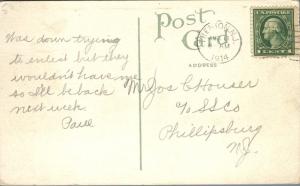 Post Card
ADDRESS
N.J.
1914
U.S. POSTAGE
1 CENT 1
Was down trying
to enlist but they
wouldn't have me
so I'll be back
next week.
Paul
Mr Jos C Houser
c/o SSCo
Phillipsburg
N.J.